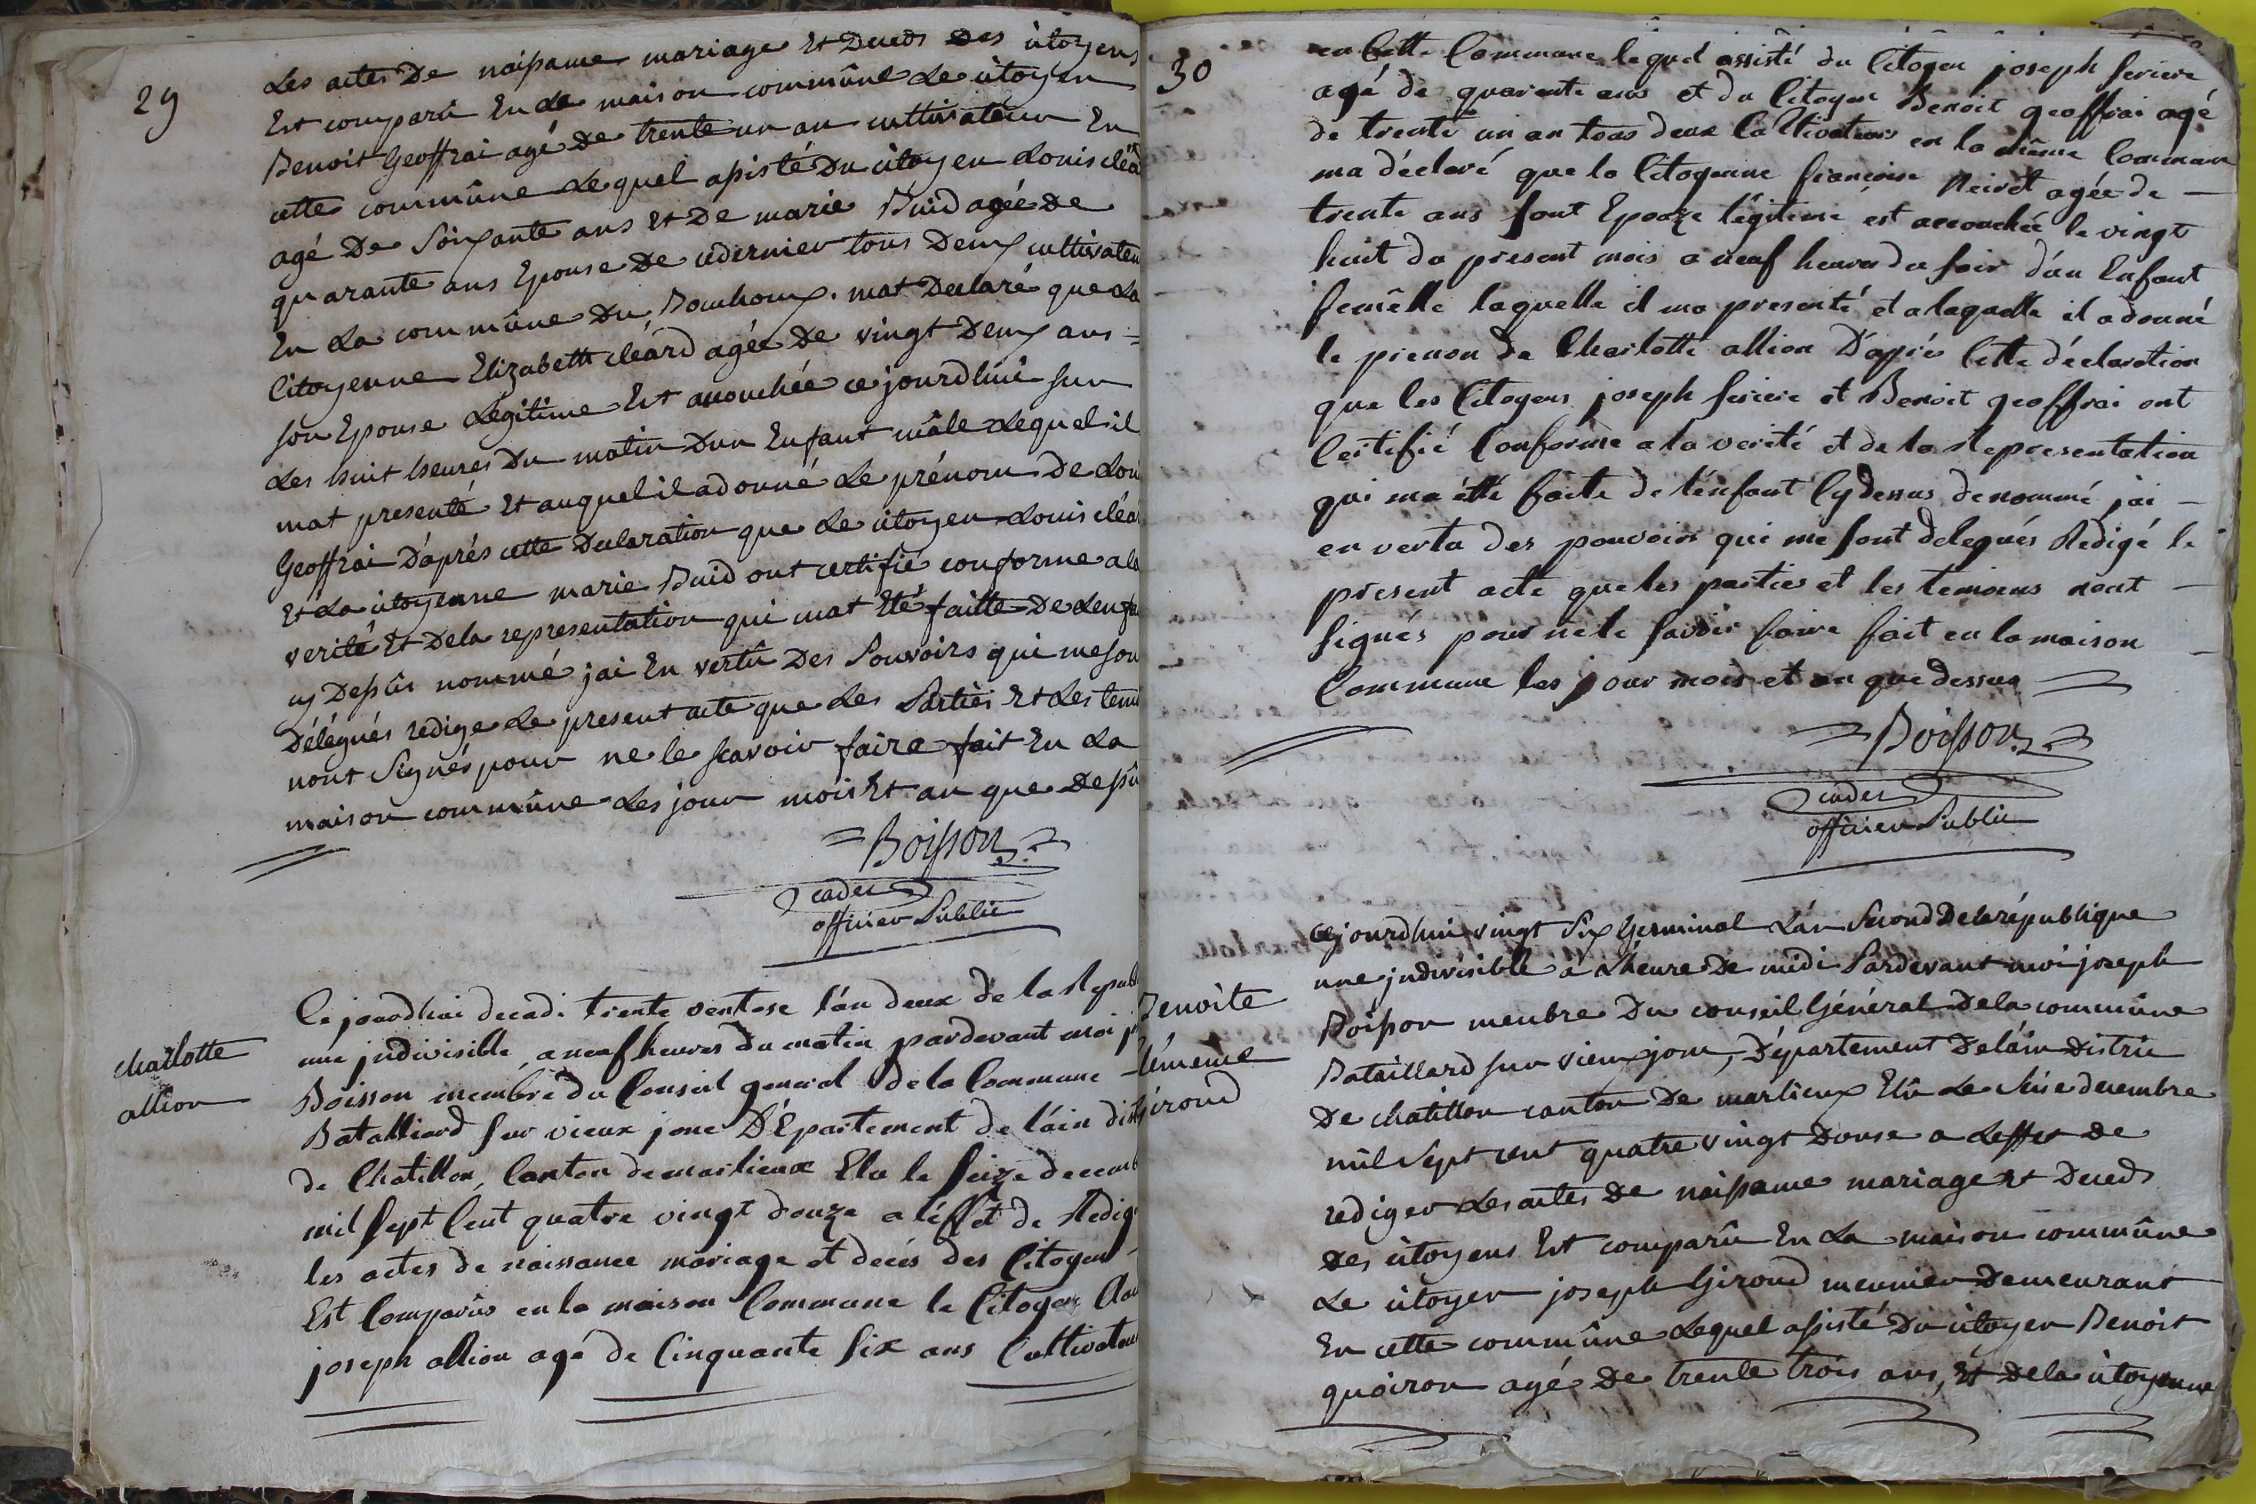 29
Les actes De naissance mariage Et Deceds Des citoyens
Est comparû En la maison commûne Le citoyen
Benoit Geoffrai agé De trente un an cultivateur En
cette commûne Lequel assisté Du citoyen Louis cléard
agé De Soixante ans Et De marie Buid agée De
quarante ans Epouse De cedernier tous Deux cultivateu
En La commûne Du Bouchoux. mat Declaré que La
Citoyenne Elizabeth cléard agée De vingt Deux ans =
son Epouse Légitime Est accouchée cejourdhui sur
Les huit heures Du matin Dun Enfant mâle Lequel il
mat presenté Et auquel il adonné Le prénom De Loui
Geoffrai D'aprés cette Declaration que Le citoyen Louis cléa
Et La citoyenne marie Buid ont certifié conforme ala
verité Et Dela representation qui mat Eté faitte De Lenfa
cy Dessûs nommé jai En vertû Des Pouvoirs qui me son
Délégués redige Le present acte que Les Parties Et Les temo
nont Signés pour ne le scavoir faire fait En La
maison commûne Les jour mois Et an que Dessû
Boisson
cader
officier Public
charlotte
allion
Ce jourdhui decadi trente ventose l'an deux de la Republ
une jndivisible, a neuf heures du matin pardevant moi j
Boisson membre du Conseil general de la Commune
Batalliard sur vieux jonc D'Epartement de l'ain dist
de Chatillon, Canton de marlieux Elu le seize decemb
mil sept Cent quatre vingt douze a l'éffet de Redig
les actes de naissance mariage et decés des Citoyens
Est Comparûs en la maison Commune le Citoyen Clau
joseph allion agé de Cinquante six ans Cultivateur
30
en Cette Commune lequel assisté du Citoyen joseph feriere
agé de quarente ans et du Citoyen Benoit geoffrai agé
de trente un an tous deux Cultivateurs en la même Commune
ma déclaré que la Citoyenne francoise Neiret agée de —
trente ans sont Epouze légitime est accouchée le vingt
huit du present mois a neuf heures du soir d'un Enfant
femêlle laquelle il ma presenté et a laquelle il a donné
le prenon de Charlotte allion D'aprés Cette déclaration
que les Citoyens joseph feriere et Benoit geoffrai ont
Certifié Conforme a la verité et de la Representation
qui ma étté faite de l'énfant Cydessus denommé jai —
en vertu des pouvoirs qui me sont delegués Redigé le
present acte que les parties et les temoins nont —
signés pour ne le savoir faire fait en la maison
Commune les jour mois et an que dessus
Boisson
cader
officier Public
Benoite
Clémence
Giroud
Cejourdhui vingt Six Germinal L'an Second Dela république
une jndivisible a L'heure De midi Pardevant moi joseph
Boisson menbre Du conseil Général Dela commûne
Bataillard sur vieux jonc, Département De láin Distric
De chatillon canton De marlieux Elû Le Seise decembre
mil Sept cent quatre vingt Douse a Leffet De
rediger Les actes De naissance mariage Et Deceds
Des citoyens Est comparû En La maison commûne
Le citoyen joseph Giroud meunier Demeurant
En cette commûne Lequel assisté Du citoyen Benoit
quoiron agé De trente trois ans, Et Dela citoyenne